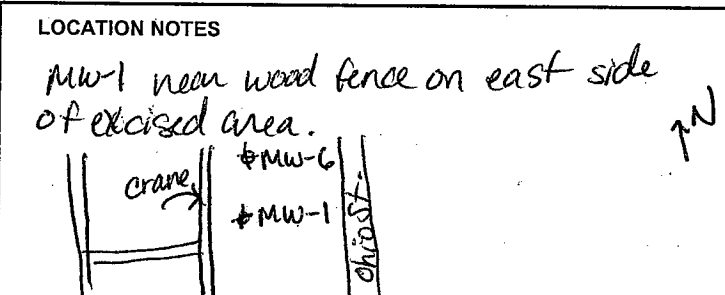 LOCATION NOTES
MW-1 near wood fence on east side
of excised area.
N
MW-6
crane
MW-1
Ohio St.